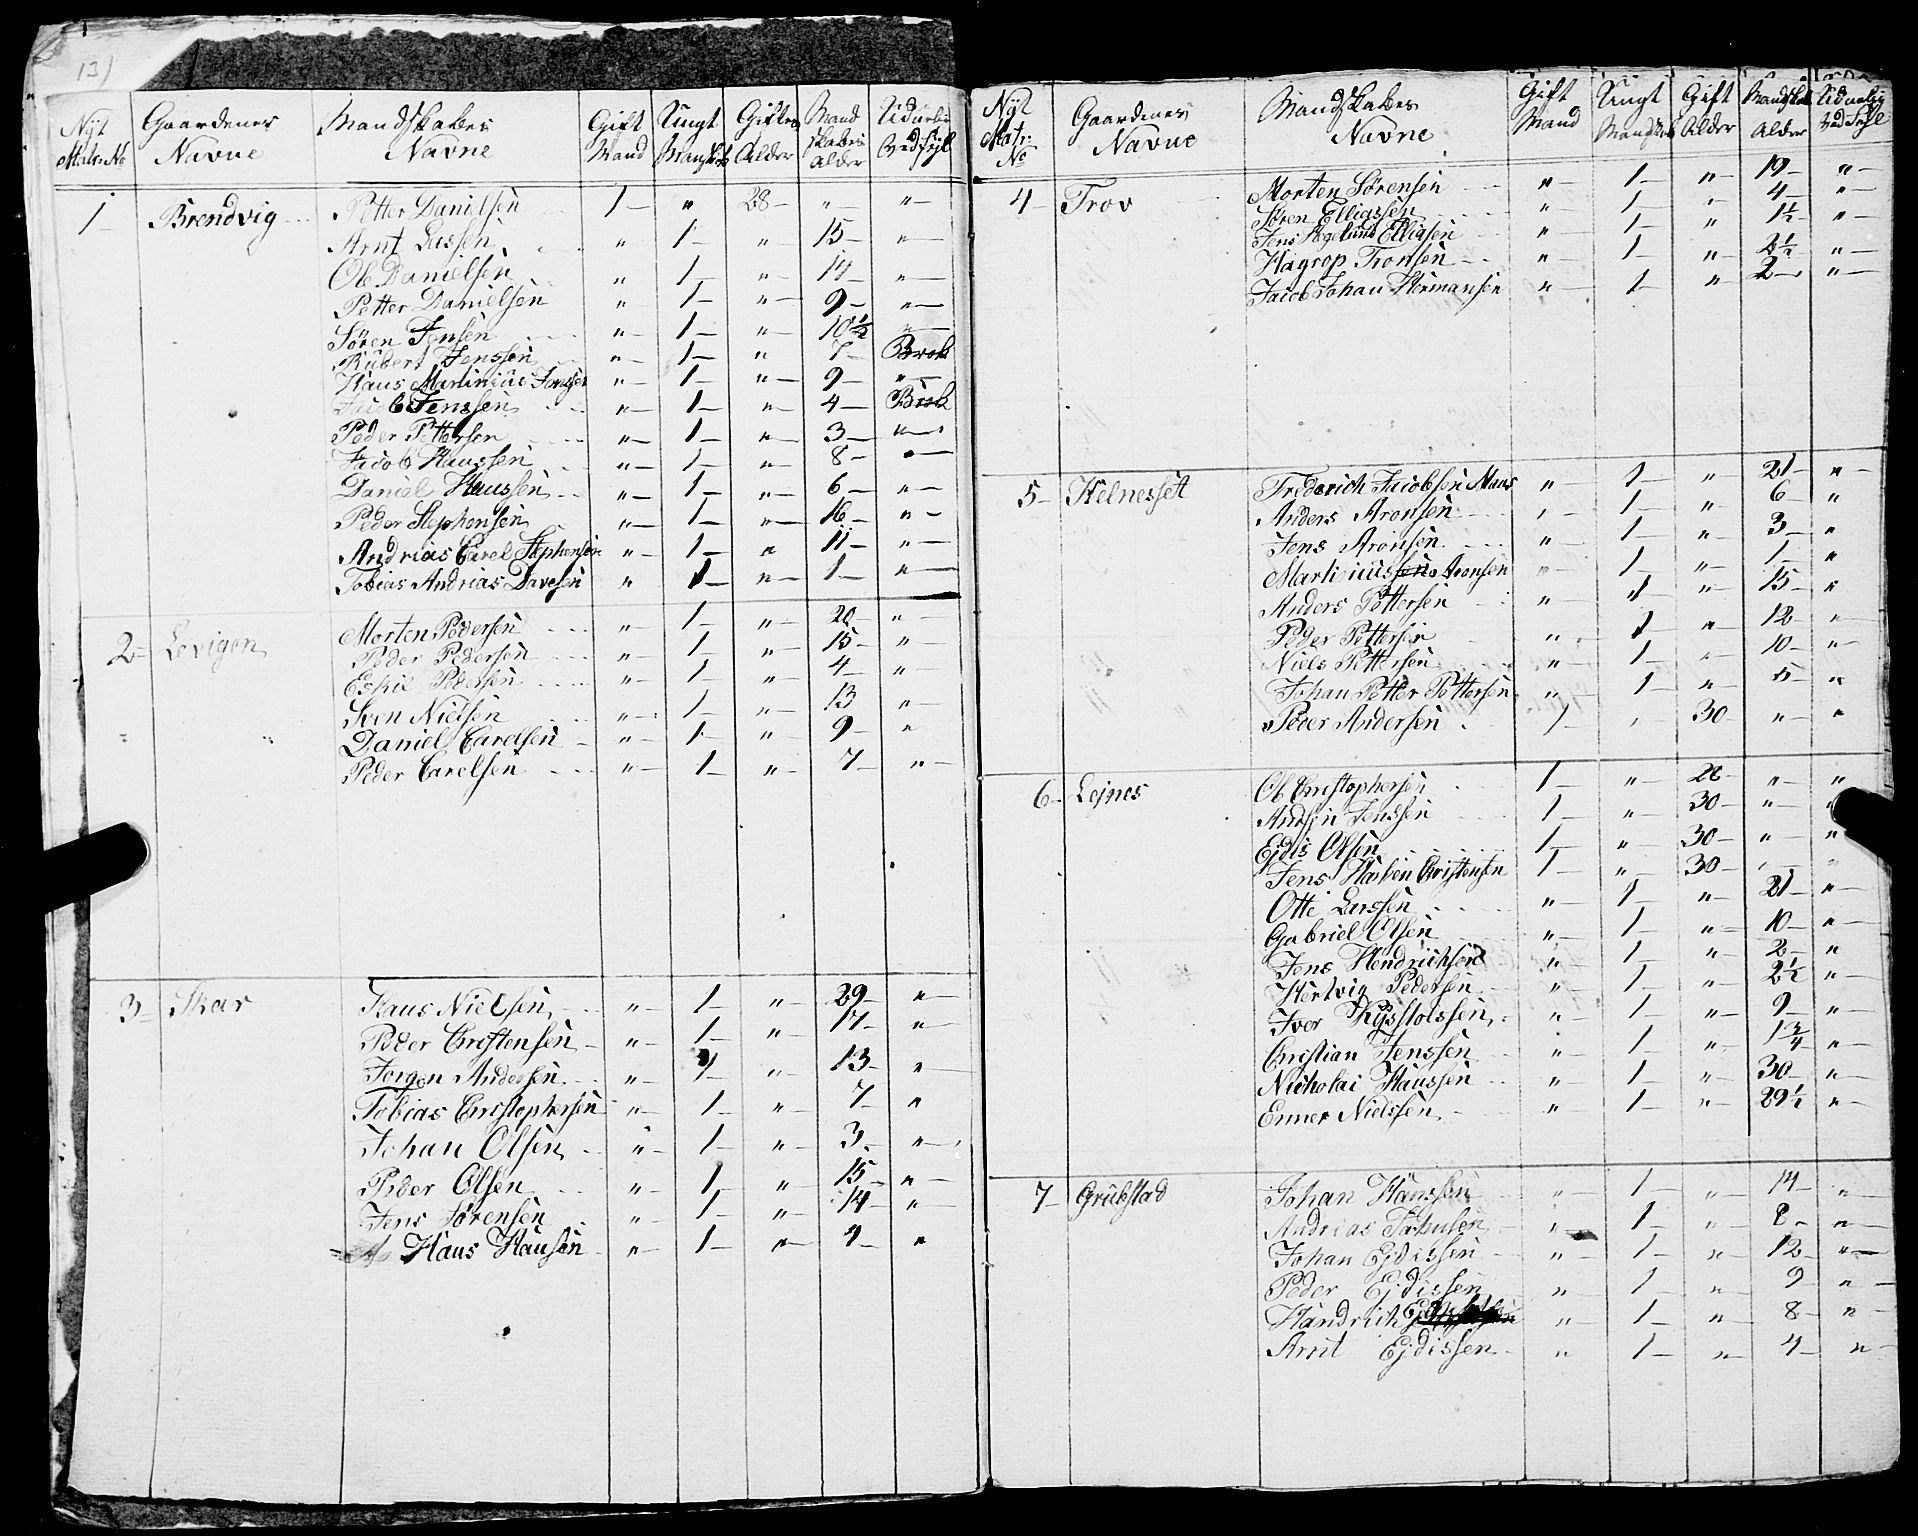 13)
Nyt Matr: No | Gaardenes Navne | Mandskabes Navne | Gift Mand | Ungt Mandskab | Giftes Alder | Mandskabes Alder | Uduelig ved Fejl
1 | Brendvig | Petter Danielsen | 1 | " | 28 | " | "
Arnt Larssen | " | 1 | " | 15 | "
Ole Danielsen | " | 1 | " | 14 | "
Petter Danielsen | " | 1 | " | 9 | "
Sören Jensen | " | 1 | " | 10½ | "
Rubert Jenssen | " | 1 | " | 7 | Brok
Hans Martinius Jenssen | " | 1 | " | 9 | "
Jacob Jenssen | " | 1 | " | 4 | Brok
Peder Pettersen | " | 1 | " | 3 | "
Jacob Hanssen | " | 1 | " | 8 | "
Daniel Hanssen | " | 1 | " | 6 | "
Peder Stephensen | " | 1 | " | 16 | "
Andrias Carel Stephensen | " | 1 | " | 11 | "
Tobias Andrias Davesen | " | 1 | " | 1 | "
2 | Levigen | Morten Pedersen | " | 1 | " | 20 | "
Peder Pedersen | " | 1 | " | 15 | "
Eskil Pedersen | " | 1 | " | 4 | "
Sven Nielsen | " | 1 | " | 13 | "
Daniel Carelsen | " | 1 | " | 9 | "
Peder Carelsen | " | 1 | " | 7 | "
3 | Skar | Hans Nielsen | " | 1 | " | 29 | "
Peder Christensen | " | 1 | " | 17 | "
Jörgen Andersen | " | 1 | " | 13 | "
Tobias Christophersen | " | 1 | " | 7 | "
Johan Olsen | " | 1 | " | 3 | "
Peder Olsen | " | 1 | " | 15 | "
Jens Sørensen | " | 1 | " | 14 | "
Hans Hansen | " | 1 | " | 4 | "
Nyt Matr: No | Gaardenes Navne | Mandskabes Navne | Gift Mand | Ungt Mandskab | Gift Alder | Mandskab Alder | Uduelig ved Fejl
4 | Trov | Morten Sörensen | " | 1 | " | 19 | "
Sören Elliassen | " | 1 | " | 4 | "
Jens Hegelund Elliasen | " | 1 | " | 1½ | "
Hagrop Tronsen | " | 1 | " | 2½ | "
Jacob Johan Hermansen | " | 1 | " | 2 | "
5 | Helnesset | Frederich Jacobsen Maas | " | 1 | " | 21 | "
Anders Aronsen | " | 1 | " | 6 | "
Jens Aronsen | " | 1 | " | 3 | "
Martinius Aronsen | " | 1 | " | 1 | "
Anders Pettersen | " | 1 | " | 15 | "
Peder Pettersen | " | 1 | " | 12 | "
Niels Pettersen | " | 1 | " | 10 | "
Johan Petter Pettersen | " | 1 | " | 5 | "
Peder Andersen | 1 | " | 30 | " | "
6 | Lejnes | Ole Christophersen | 1 | " | 28 | " | "
Jenssen | 1 | " | 30 | " | "
Ejdis Olsen | 1 | " | 30 | " | "
Jens Christensen | 1 | " | 30 | " | "
Otte Larssen | " | 1 | " | 21 | "
Gabriel Olsen | " | 1 | " | 10 | "
Jens Hendrichsen | " | 1 | " | 2 | "
Hertvig Pedersen | " | 1 | " | 2½ | "
Iver | " | 1 | " | 9 | "
Christian Jenssen | " | 1 | " | 1¾ | "
Nicholai Hanssen | " | 1 | " | 30 | "
Enner Nielssen | " | 1 | " | 29½ | "
7 | Grubstad | Johan Hanssen | " | 1 | " | 14 | "
Andrias | " | 1 | " | 8 | "
Johan Ejdissen | " | 1 | " | 12 | "
Peder Ejdissen | " | 1 | " | 9 | "
Handrich | " | 1 | " | 8 | "
Arnt Ejdissen | " | 1 | " | 4 | "